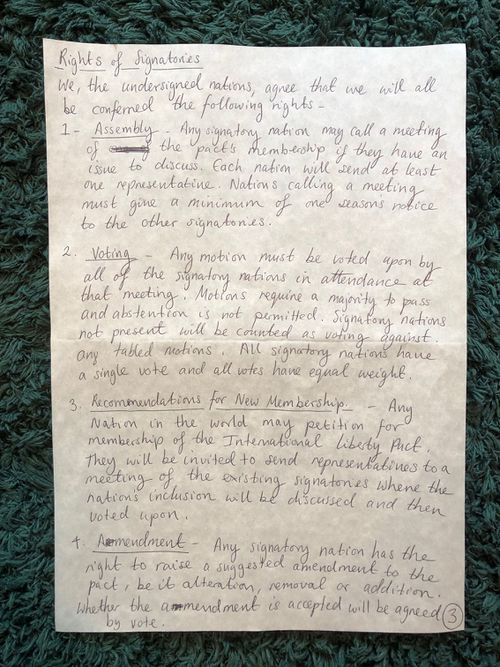 Rights of Signatories
We, the undersigned nations, agree that we will all
be conferred the following rights -
1 - Assembly - Any signatory nation may call a meeting
of the pact's membership if they have an
issue to discuss. Each nation will send at least
one representative. Nations calling a meeting
must give a minimum of one seasons notice
to the other signatories.
2. Voting - Any motion must be voted upon by
all of the signatory nations in attendance at
that meeting. Motions require a majority to pass
and abstention is not permitted. Signatory nations
not present will be counted as voting against
any tabled motions. All signatory nations have
a single vote and all votes have equal weight.
3. Recommendations for New Membership - Any
Nation in the world may petition for
membership of the International Liberty Pact.
They will be invited to send representatives to a
meeting of the existing signatories where the
nations inclusion will be discussed and then
voted upon.
4. Amendment - Any signatory nation has the
right to raise a suggested amendment to the
pact, be it alteration, removal or addition.
Whether the amendment is accepted will be agreed
by vote.
3